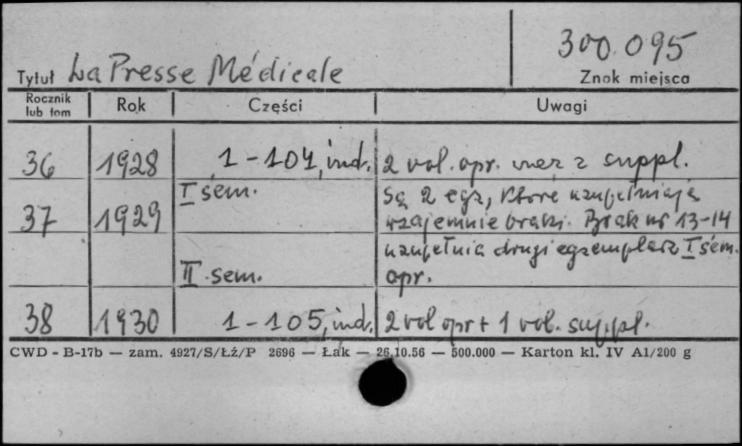 300.095
Tytuł La Presse Médicale Znak miejsca
Rocznik lub tom Rok Części Uwagi
36 1928 1-104, ind. 2 vol. opr. wraz z suppl.
I sem. Są 2 egz, które uzupełniają
37 1929 wzajemnie braki. Brak nr 13-14
uzupełnia drugi egzemplarz I sem.
II sem. opr.
38 1930 1-105, ind. 2 vol opr + 1 vol. suppl.
CWD - B-17b — zam. 4927/S/Łź/P 2696 — Łak — 26.10.56 — 500.000 — Karton kl. IV A1/200 g